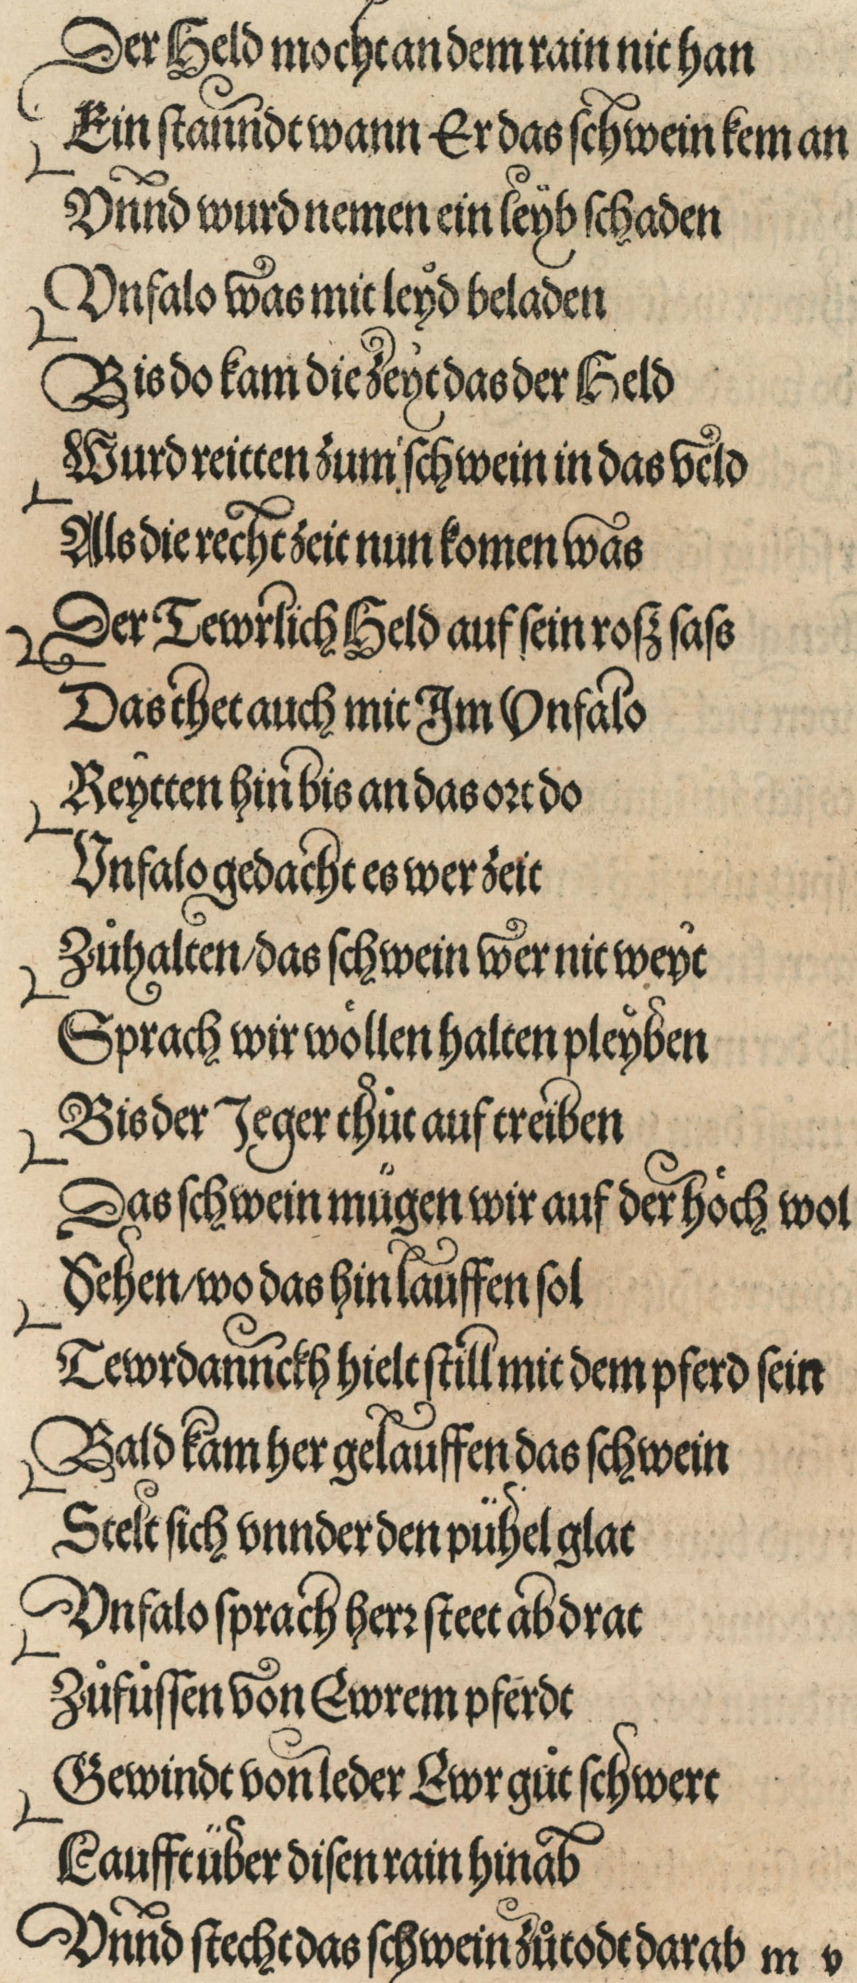 Der Held mocht an dem rain nit han
Ein stanndt wann Er das schwein kem an
Vnnd wurd nemen ein leyb schaden
Vnfalo was mit leyd beladen
Bis do kam die zeyt das der Held
Wurd reitten zum schwein in das veld
Als die recht zeit nun komen was
Der Tewrlich Held auf sein rosz sass
Das thet auch mit Im Vnfalo
Reytten hin bis an das ort do
Vnfalo gedacht es wer zeit
Zůhalten/das schwein wer nit weyt
Sprach wir wöllen halten pleyben
Bis der Jeger thůt auf treiben
Das schwein mügen wir auf der höch wol
Sehen/wo das hin lauffen sol
Tewrdannckh hielt still mit dem pferd sein
Bald kam her gelauffen das schwein
Stelt sich vnnder den pühel glat
Vnfalo sprach herr steet ab drat
Zůfůssen von Ewrem pferdt
Gewindt von leder Ewr gůt schwert
Laufft über disen rain hinab
Vnnd stecht das schwein zůtodt darab m v